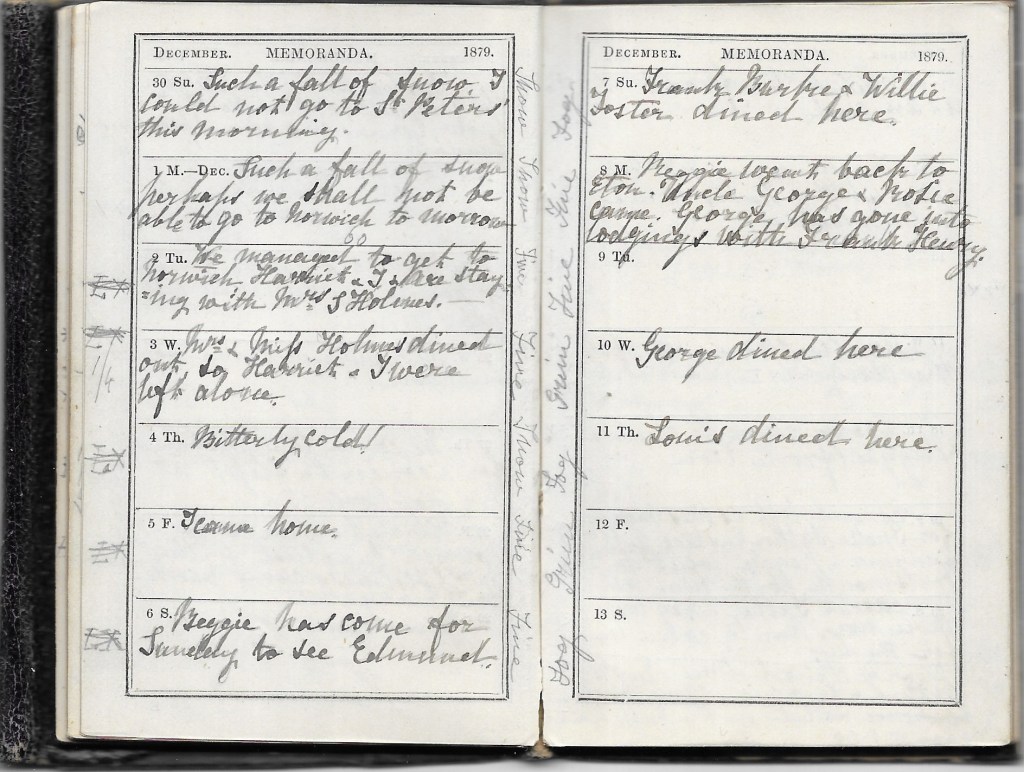 DECEMBER. MEMORANDA. 1879.
30 Su. Such a fall of snow. I
could not go to St Peters'
this morning.
1 M.—DEC. Such a fall of snow
perhaps we shall not be
able to go to Norwich to morrow
2 Tu. We managed to get to
Norwich Harriet & I & are stay
=ing with Mrs S Holmes. —
3 W. Mrs & Miss Holmes dined
out, so Harriet & I were
left alone.
4 Th. Bitterly cold!
5 F. I came home.
6 S. Reggie has come for
Sunday to see Edmund.
Snow Snow Fine Fine Snow Fine Fine
DECEMBER. MEMORANDA. 1879.
7 Su. Frank Burke & Willie
Foster dined here.
8 M. Reggie went back to
Eton. Uncle George & Rosie
came. George has gone into
lodgings with Frank Henry.
9 Tu.
10 W. George dined here
11 Th. Louis dined here.
12 F.
13 S.
Fog Fog Fine Fine Fog